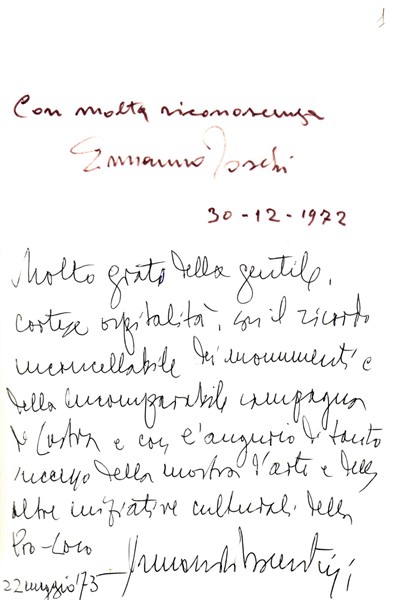 1
Con molta riconoscenza
Ermanno Toschi
30-12-1972
Molto grato della gentile,
cortese ospitalità, con il ricordo
incancellabile dei monumenti e
della incomparabile campagna
di e con l'augurio di tanto
successo della mostra d'arte e delle
altre iniziative culturali della
Pro-Loco
22 maggio '75